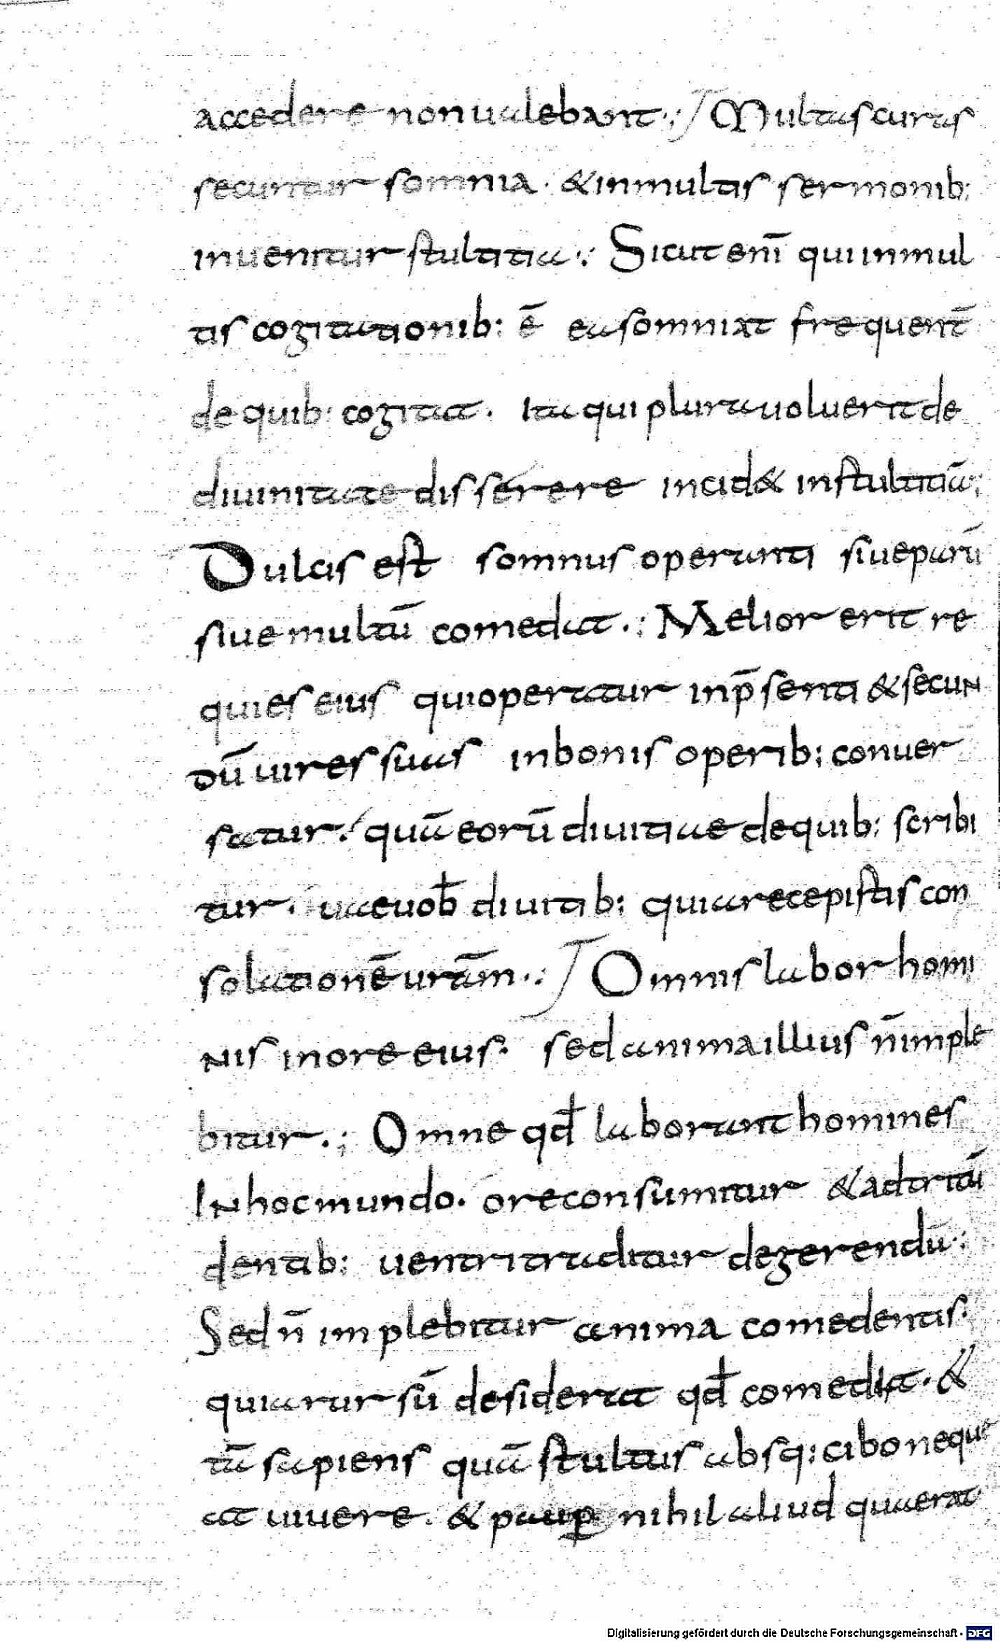 accedere non ualebant·; Multas curas
secuntur somnia · & in multis sermonib;
inuenitur stultitia ·; Sicut enī qui in mul
tis cogitationib; ē ea somniat frequent̄
de quib; cogitat · Ita qui plura uoluerit de
diuinitate disserere incid& in stultitiā;
Dulcis est somnus operanti siue parū
siue multū comedat ·; Melior erit re
quies eius qui operatur in p̄senti & secun
dū uires suas in bonis operib; conuer
satur · quā eorū diuitiae de quib; scribi
tur · uae uob̄ diuitib; quia recepistis con
solationē urām ·; Omnis labor homi
nis in ore eius · sed anima illius n̄ imple
bitur ·; Omne qd̄ laborant homines
In hoc mundo · ore consumitur & adtritū
dentib; uentri traditur degerendū ·;
Sed n̄ implebitur anima comedentis ·
quia rursū desiderat qd̄ comedat · &
tā sapiens quā stultus absq; cibo neque
at uiuere · & paup̲ nihil aliud quaerat
Digitalisierung gefördert durch die Deutsche Forschungsgemeinschaft - DFG